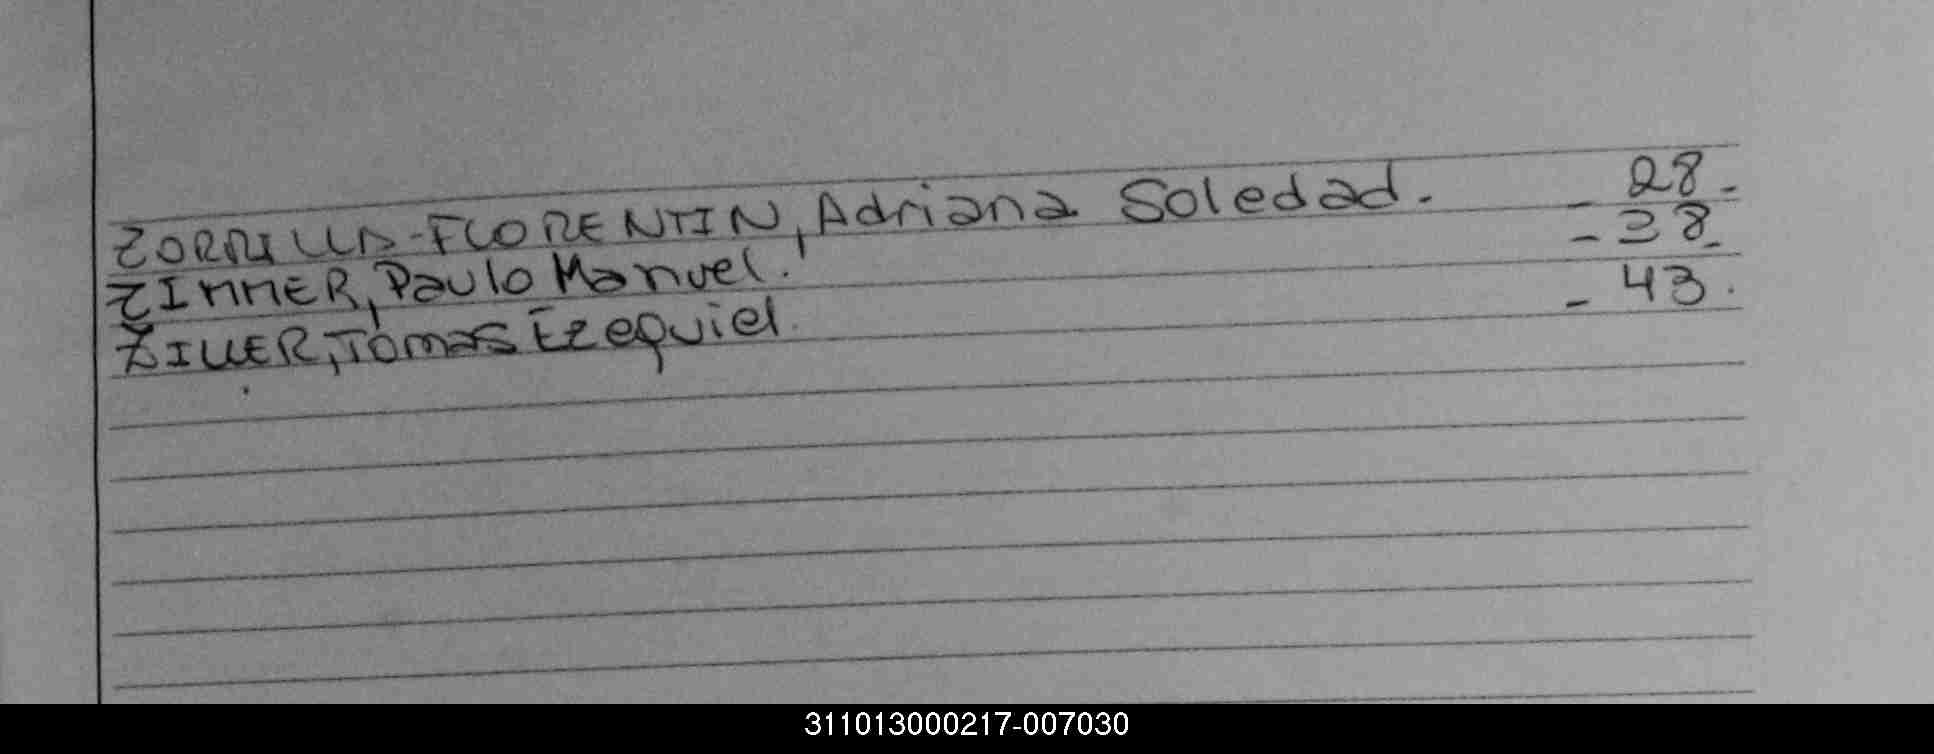 ZORRILLA-FLORENTIN, Adriana Soledad. - 28.
ZIMMER, Paulo Manuel. - 38.
ZILLER, Tomas Ezequiel. - 43.
311013000217-007030